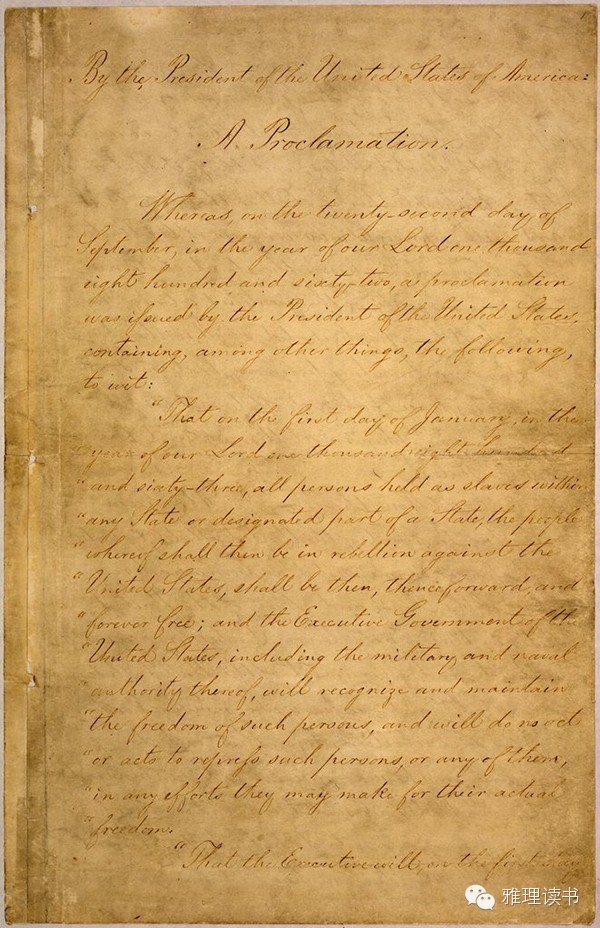 By the President of the United States of America:
A Proclamation.
Whereas, on the twenty-second day of
September, in the year of our Lord one thousand
eight hundred and sixty-two, a proclamation
was issued by the President of the United States,
containing, among other things, the following,
to wit:
"That on the first day of January, in the
"year of our Lord one thousand eight hundred
"and sixty-three, all persons held as slaves within
"any State or designated part of a State, the people
"whereof shall then be in rebellion against the
"United States, shall be then, thenceforward, and
"forever free; and the Executive Government of the
"United States, including the military and naval
"authority thereof, will recognize and maintain
"the freedom of such persons, and will do no act
"or acts to repress such persons, or any of them,
"in any efforts they may make for their actual
"freedom.
"That the Executive will, on the first day
雅理读书